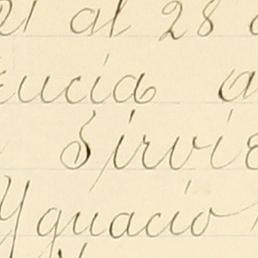 21 al 28 d
encia a
Sirvie
Ygnacio